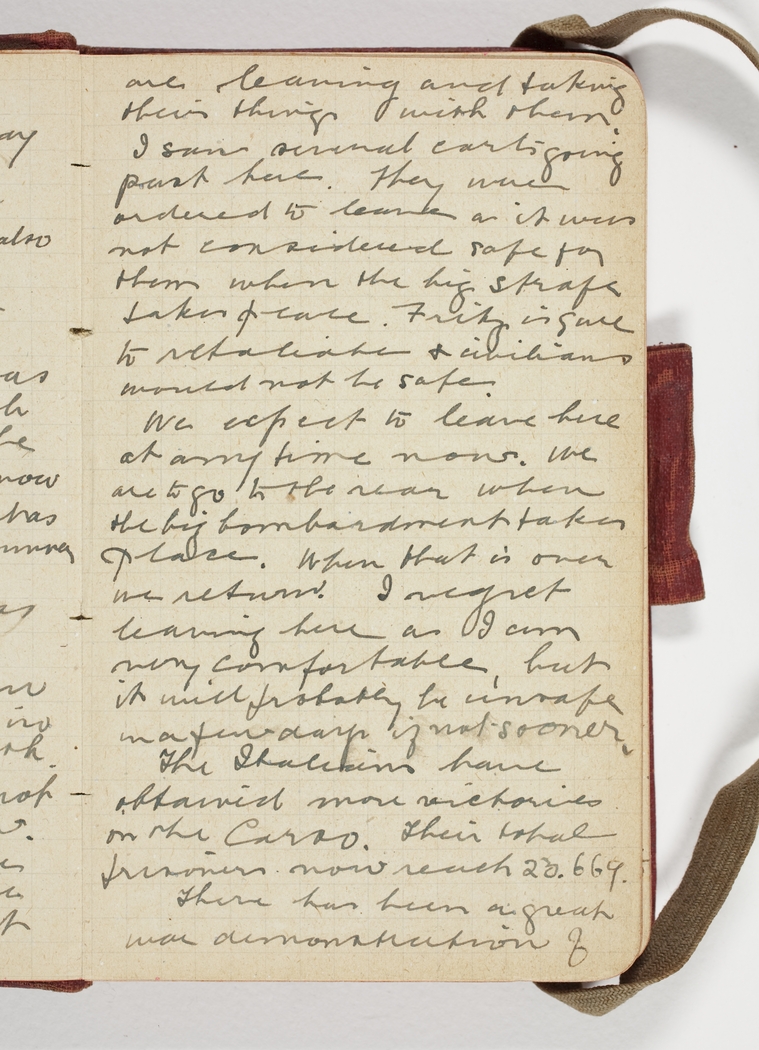 ay
also
as
h
be
now
has
as
in
rk.
not
are leaving and taking
their things with them.
I saw several carts going
past here. They were
ordered to leave as it was
not considered safe for
them when the big strafe
takes place. Fritz is sure
to retaliate & civilians
would not be safe
We expect to leave here
at any time now. We
are to go to the rear when
the big bombardment takes
place. When that is over
we return. I regret
leaving here as I am
very comfortable, but
it will probably be unsafe
in a few days if not sooner.
The Italians have
obtained more victories
on the Carso. Their total
prisoners now reach 23.669.
There has been a great
war demonstration